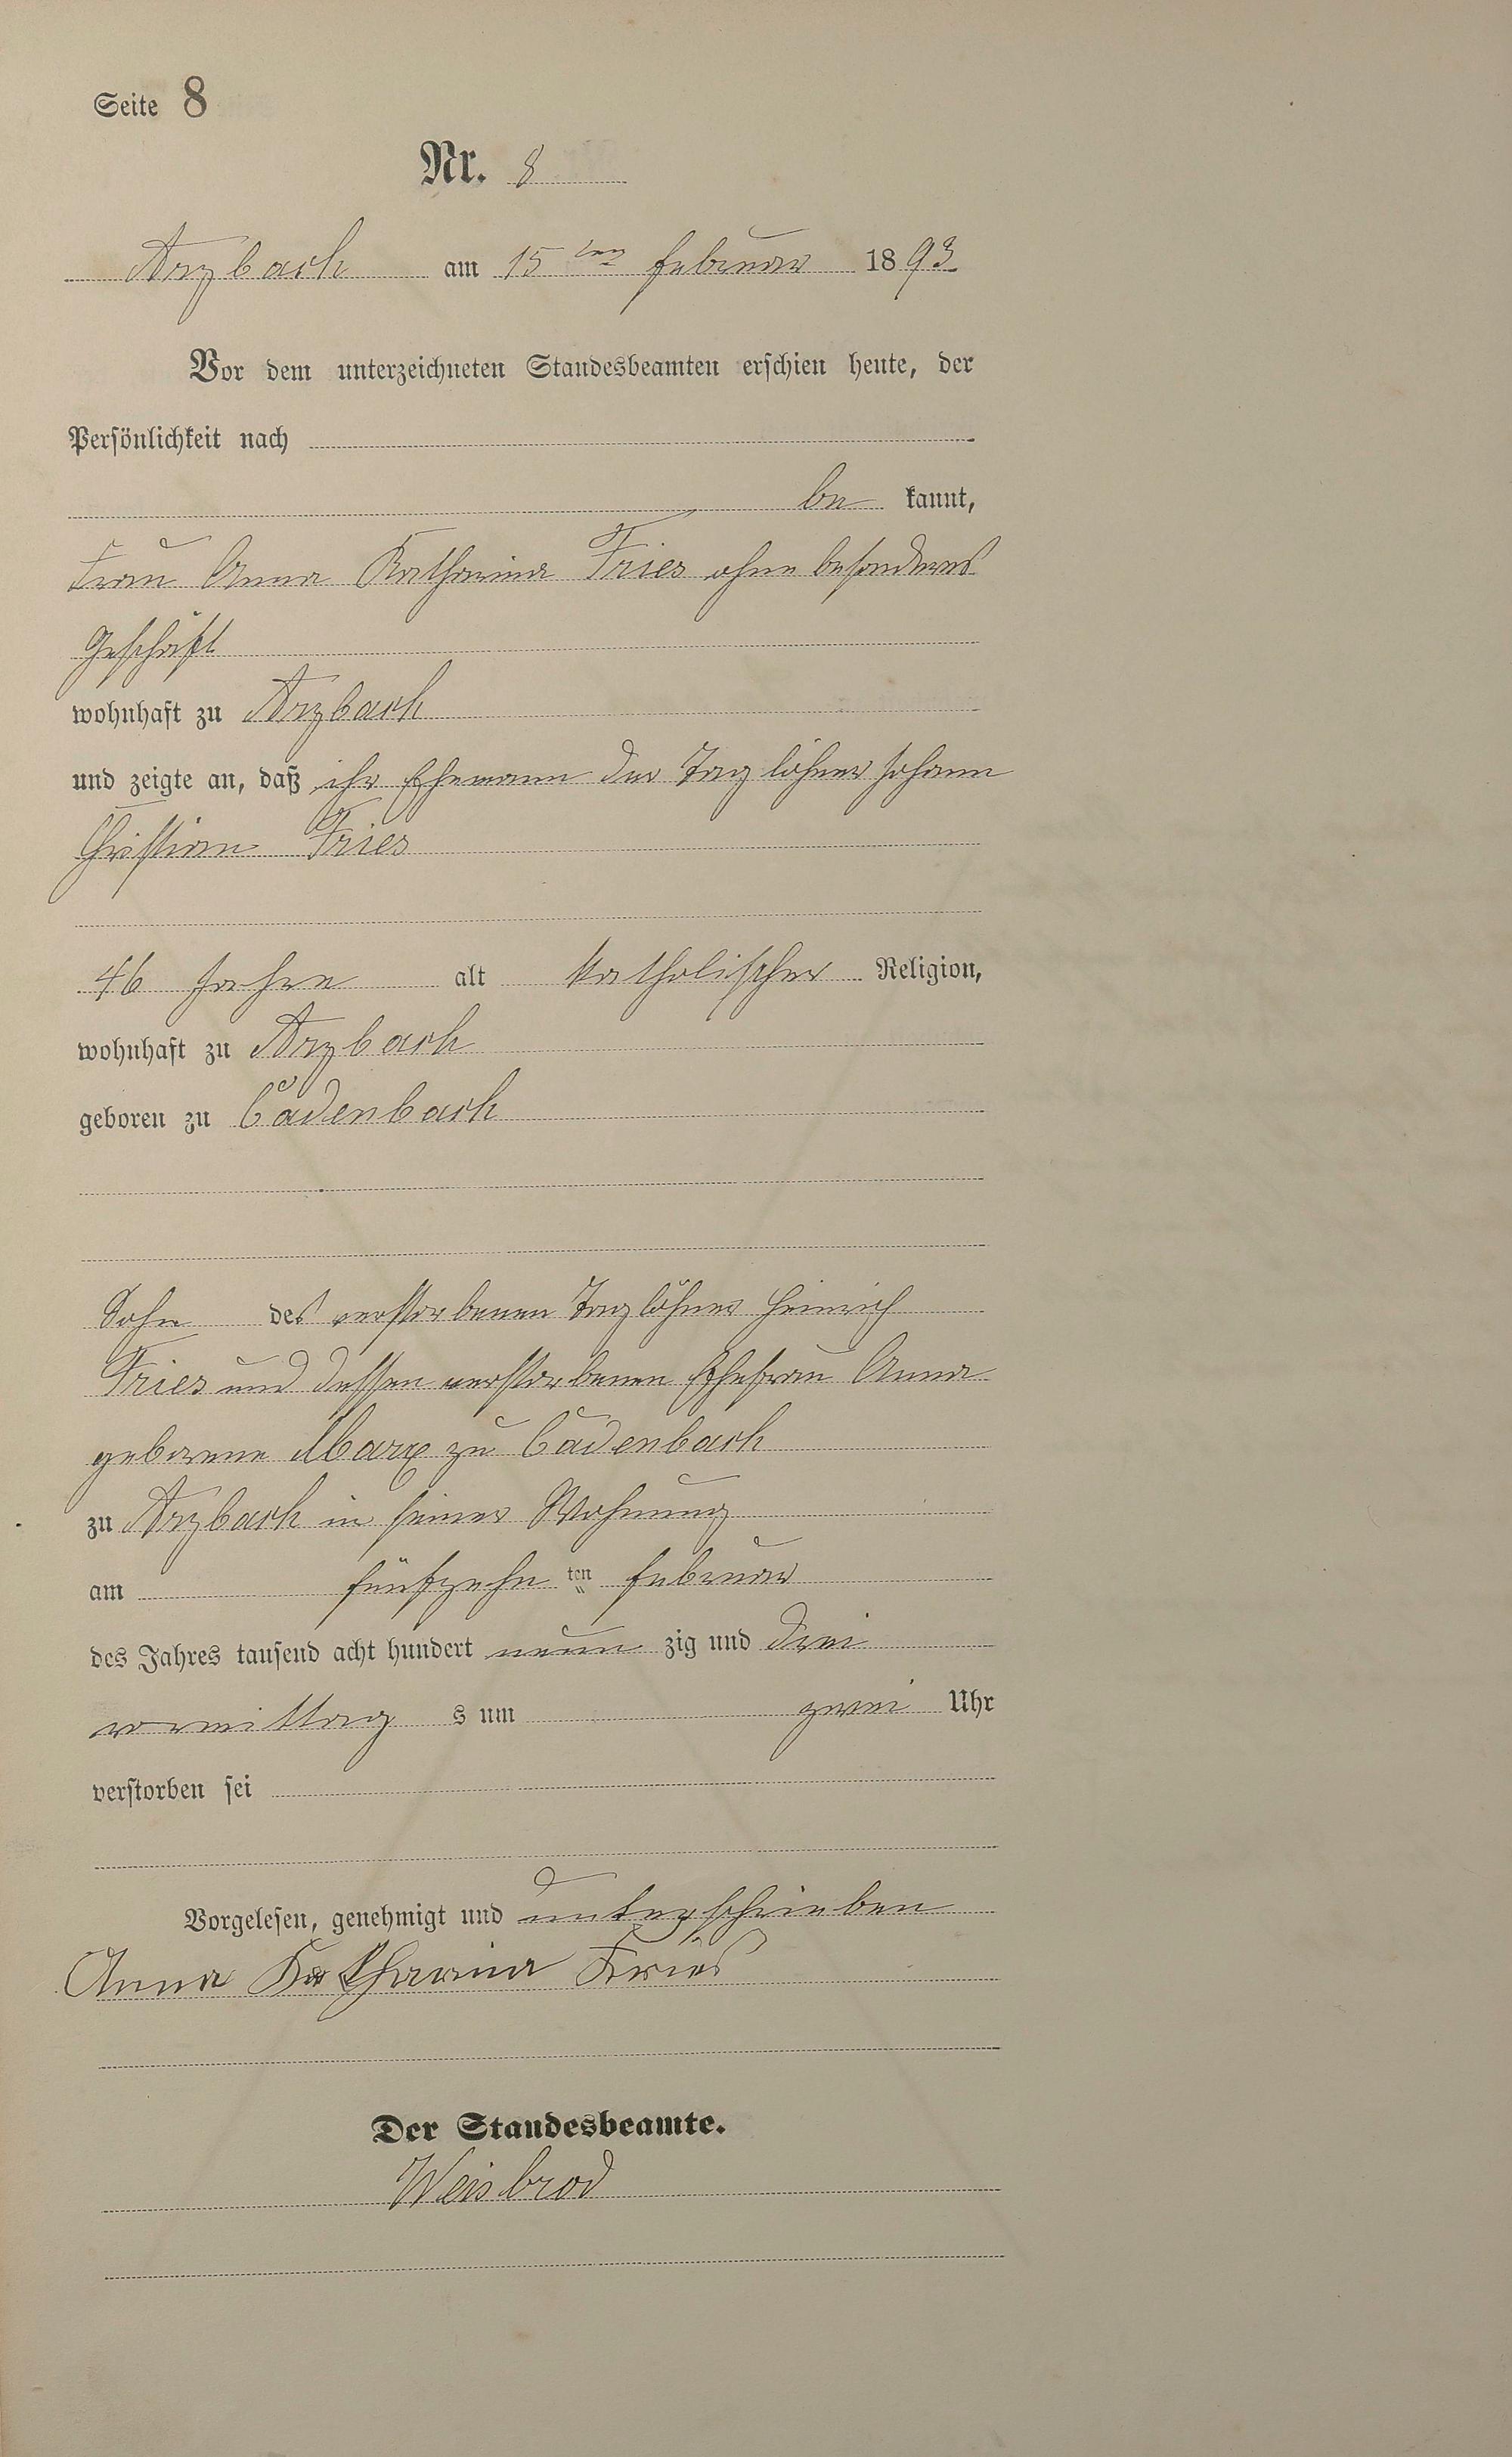 Seite 8
Nr. 8
Arzbach am 15 ten Februar 1893
Vor dem unterzeichneten Standesbeamten erschien heute, der
Persönlichkeit nach
be kannt,
Frau Anna Katharina Fries ohne besonderes
Geschäft
wohnhaft zu Arzbach
und zeigte an, daß ihr Ehemann der Taglöhner Johann
Christian Fries
46 Jahre alt katholischer Religion,
wohnhaft zu Arzbach
geboren zu Cadenbach
Sohn des verstorbenen Taglöhner Heinrich
Fries und dessen verstorbenen Ehefrau Anna
geborene Marx zu Cadenbach
zu Arzbach in seiner Wohnung
am fünfzehn ten Februar
des Jahres tausend acht hundert neun zig und drei
vormittag s um zwei Uhr
verstorben sei
Vorgelesen, genehmigt und unterschrieben
Anna Katharina Fries
Der Standesbeamte.
Weisbrod